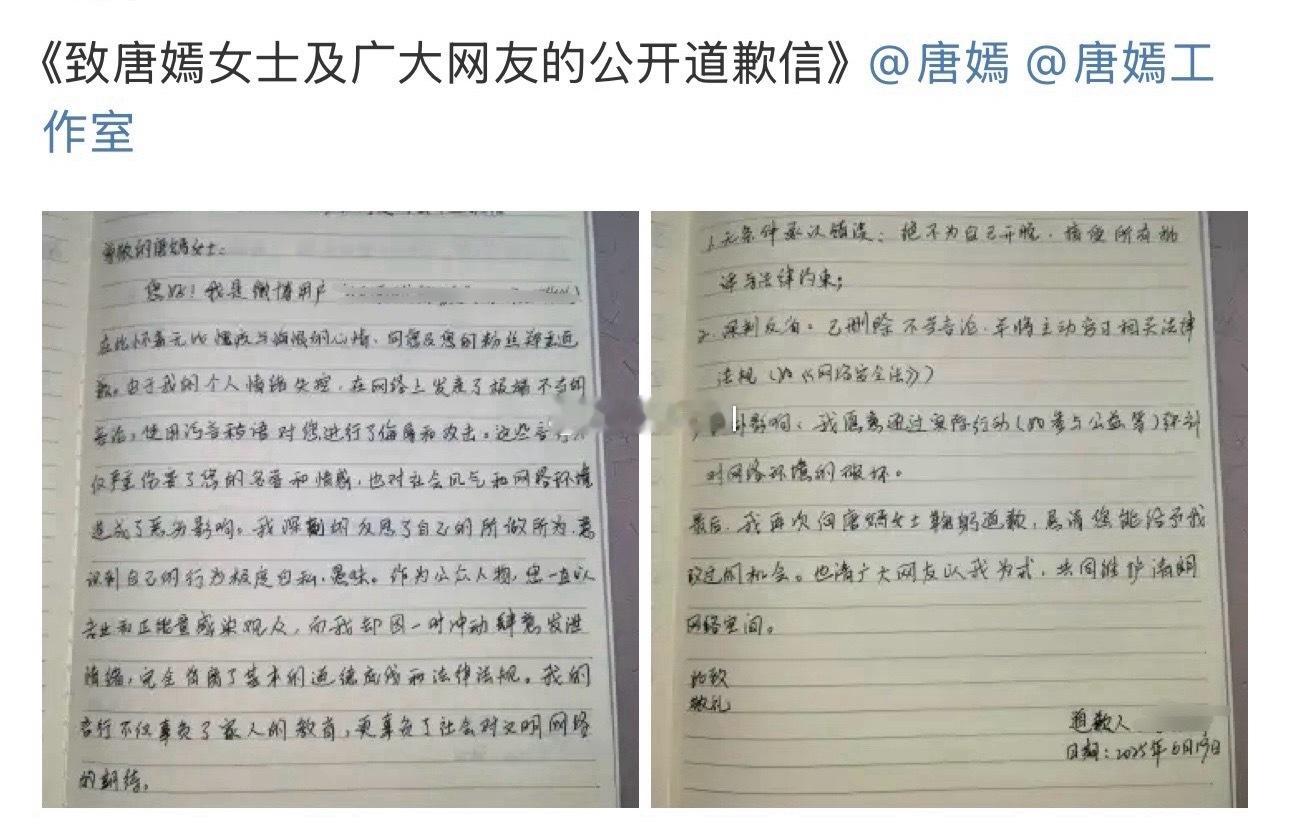 《致唐嫣女士及广大网友的公开道歉信》@唐嫣 @唐嫣工
作室
尊敬的唐嫣女士:
您好!我是微博用户
在此怀着无比愧疚与悔恨的心情,向您及您的粉丝郑重道
歉。由于我的个人情绪失控,在网络上发表了极端不当的
言论,使用污言秽语对您进行了侮辱和攻击。这些言行不
仅严重伤害了您的名誉和情感,也对社会风气和网络环境
造成了恶劣影响。我深刻的反思了自己的所做所为,意
识到自己的行为极度自私、愚昧。作为公众人物,您一直以
专业和正能量感染观众,而我却因一时冲动肆意发泄
情绪,完全背离了基本的道德底线和法律法规。我的
言行不仅辜负了家人的教育,更辜负了社会对文明网络
的期待。
1.无条件承认错误:绝不为自己开脱,接受所有批
评与法律约束;
2.深刻反省。已删除不当言论,并将主动学习相关法律
法规(如《网络安全法》)
影响:我愿意通过实际行动(如参与公益等)弥补
对网络环境的破坏。
最后,我再次向唐嫣女士鞠躬道歉,恳请您能给予我
改过的机会。也请广大网友以我为戒,共同维护清明
网络空间。
此致
敬礼
道歉人
日期:2025年6月19日